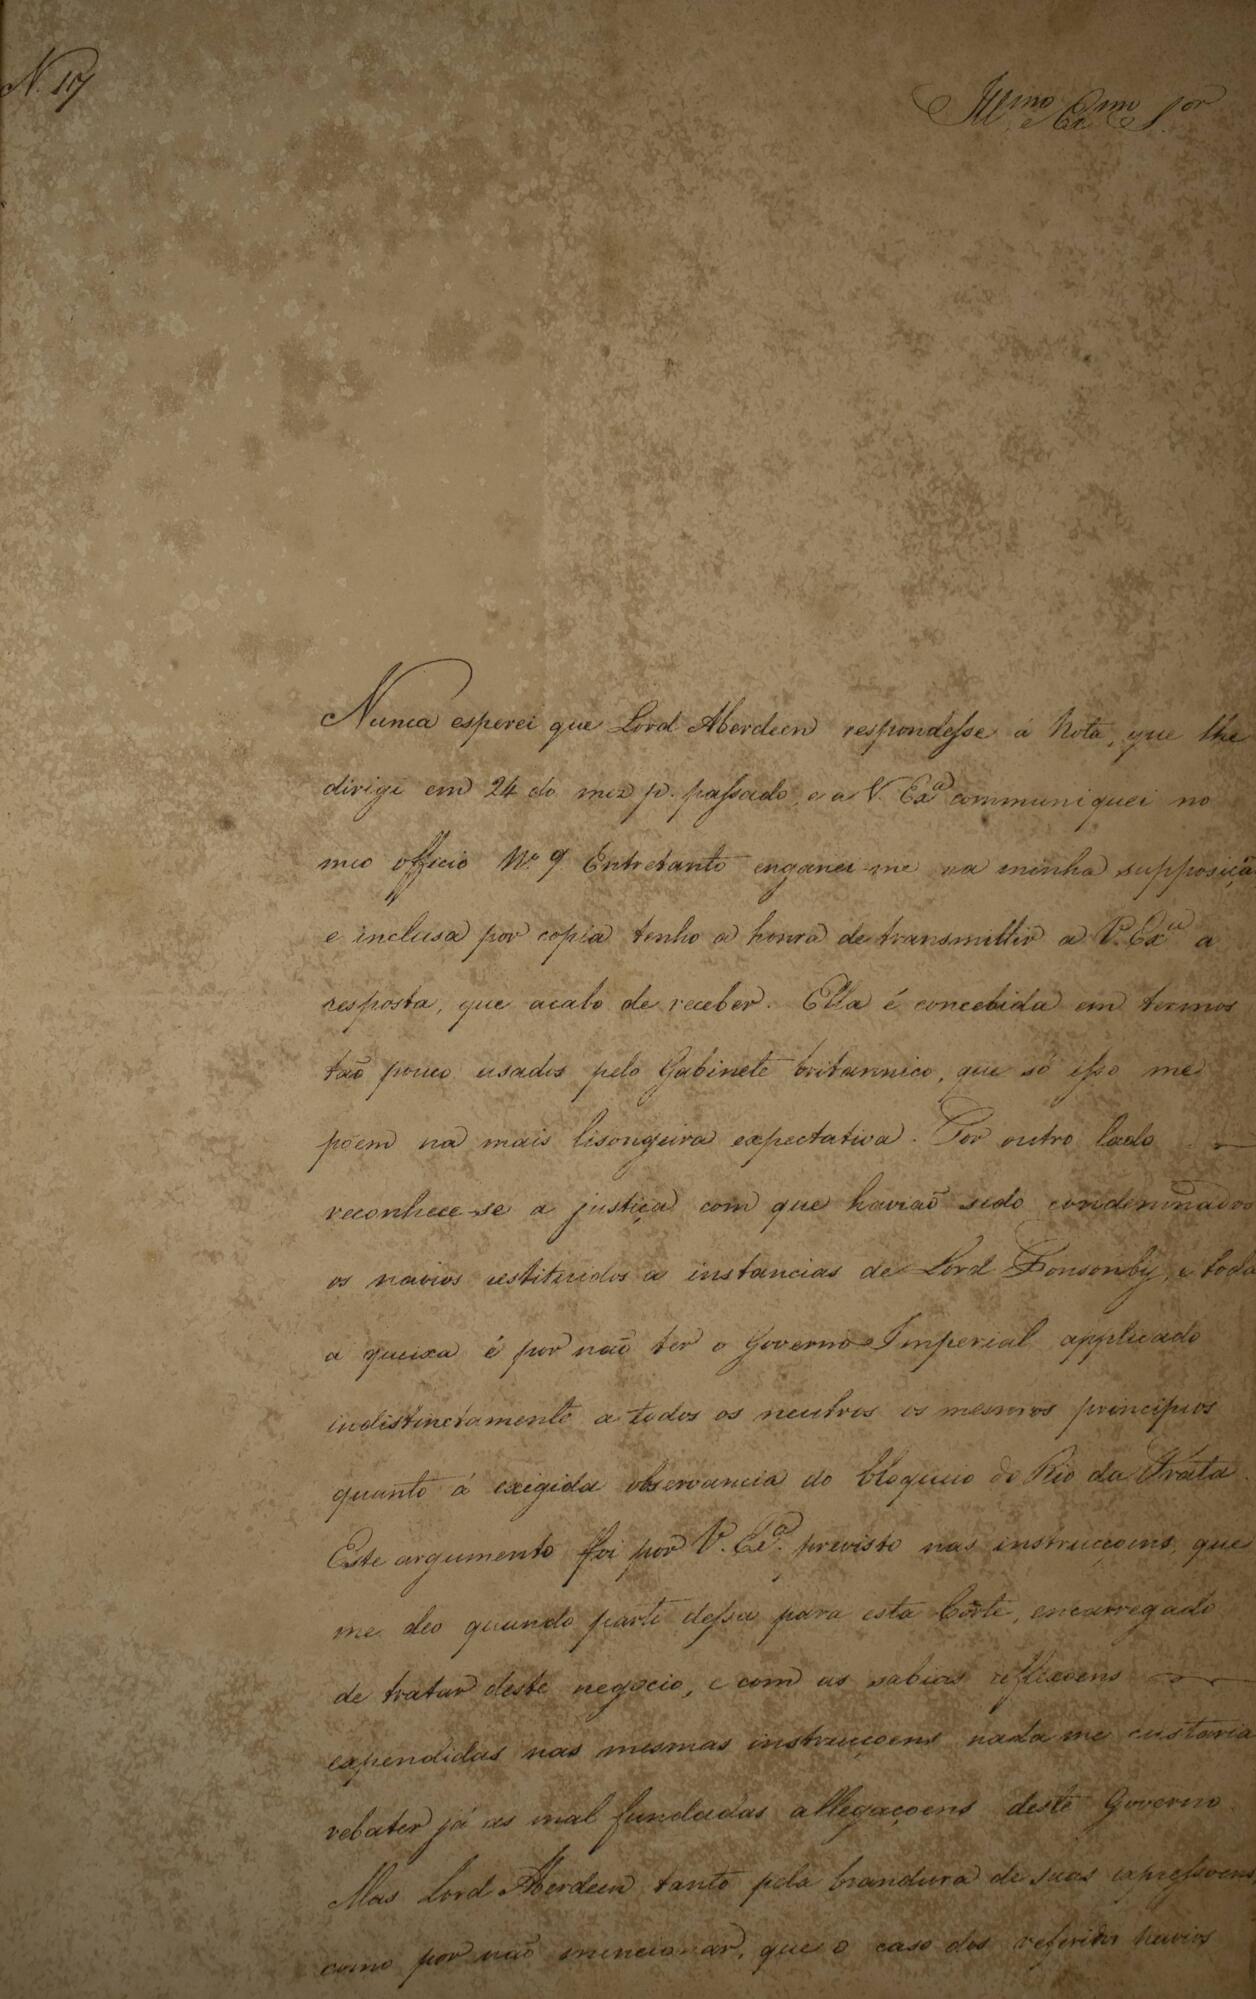 N. 17
Illmo e Exmo Sor
Nunca esperei que Lord Aberdeen respondesse á Nota, que lhe
dirigi em 24 do mez p. passado, e a V. Exa communiquei no
meo officio No 9. Entretanto enganei-me na minha supposição
e inclusa por copia tenho a honra de transmittir a V. Exa a
resposta, que acabo de receber. Ella é concebida em termos
tão pouco usados pelo Gabinete britannico, que só isso me
põem na mais lisongeira expectativa. Por outro lado
reconhece-se a justiça com que havião sido condemnados
os navios restituidos a instancias de Lord Ponsonby, e toda
a queixa é por não ter o Governo Imperial applicado
indistinctamente a todos os neutros os mesmos principios
quanto á exigida observancia do bloqueio do Rio da Prata.
Este argumento foi por V. Exa. previsto nas instrucçoens, que
me deo quando parti dessa para esta Côrte, encarregado
de tratar deste negocio, e com as sabias reflexoens
expendidas nas mesmas instrucçoens nada me custaria
rebater já as mal fundadas allegaçoens deste Governo.
Mas Lord Aberdeen tanto pela brandura de suas expressoens,
como por não mencionar, que o caso dos referidos navios